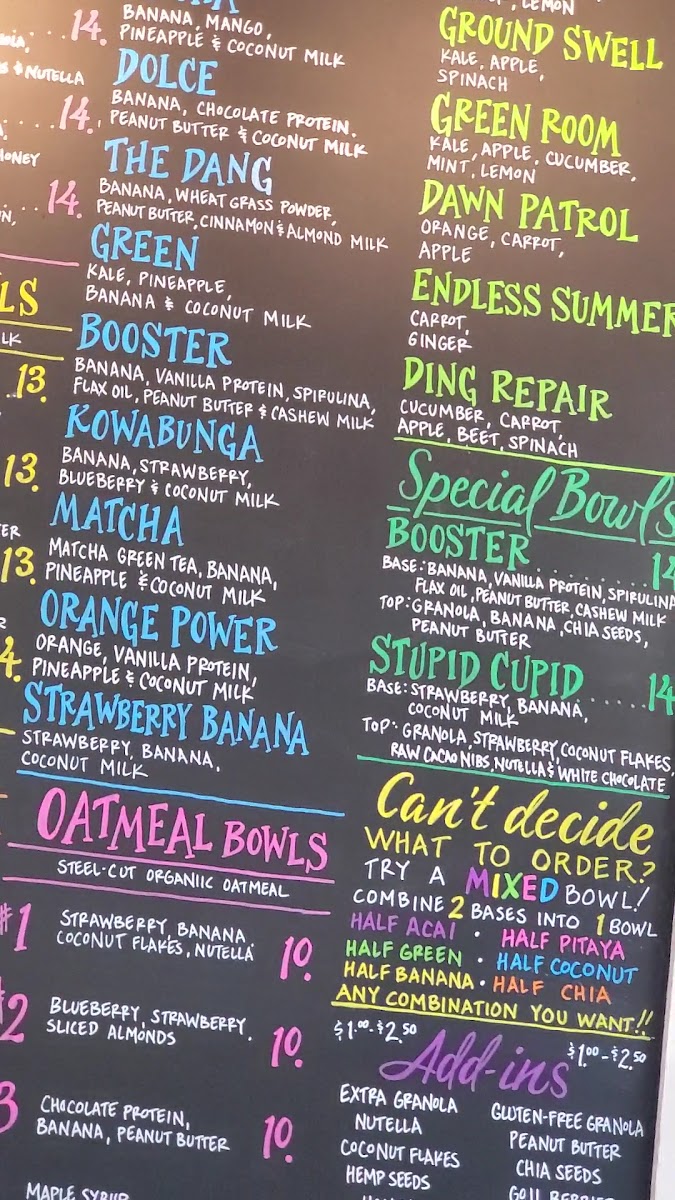 14.
& NUTELLA
14.
HONEY
14.
LS
LK
13.
13.
13.
4.
BANANA, MANGO,
PINEAPPLE & COCONUT MILK
DOLCE
BANANA, CHOCOLATE PROTEIN.
PEANUT BUTTER & COCONUT MILK
THE DANG
BANANA, WHEAT GRASS POWDER,
PEANUT BUTTER, CINNAMON & ALMOND MILK
GREEN
KALE, PINEAPPLE,
BANANA & COCONUT MILK
BOOSTER
BANANA, VANILLA PROTEIN, SPIRULINA,
FLAX OIL, PEANUT BUTTER & CASHEW MILK
KOWABUNGA
BANANA, STRAWBERRY,
BLUEBERRY & COCONUT MILK
MATCHA
MATCHA GREEN TEA, BANANA,
PINEAPPLE & COCONUT MILK
ORANGE POWER
ORANGE, VANILLA PROTEIN,
PINEAPPLE & COCONUT MILK
STRAWBERRY BANANA
STRAWBERRY, BANANA,
COCONUT MILK
OATMEAL BOWLS
STEEL-CUT ORGANIIC OATMEAL
#1 STRAWBERRY, BANANA,
COCONUT FLAKES, NUTELLA 10.
#2 BLUEBERRY, STRAWBERRY.
SLICED ALMONDS 10.
3 CHOCOLATE PROTEIN,
BANANA, PEANUT BUTTER 10.
MAPLE SYRUP
LEMON
GROUND SWELL
KALE, APPLE,
SPINACH
GREEN ROOM
KALE, APPLE, CUCUMBER,
MINT, LEMON
DAWN PATROL
ORANGE, CARROT,
APPLE
ENDLESS SUMMER
CARROT,
GINGER
DING REPAIR
CUCUMBER, CARROT,
APPLE, BEET, SPINACH
Special Bowls
BOOSTER..........14
BASE: BANANA, VANILLA PROTEIN, SPIRULINA
FLAX OIL, PEANUT BUTTER, CASHEW MILK
TOP: GRANOLA, BANANA, CHIA SEEDS,
PEANUT BUTTER
STUPID CUPID......14
BASE: STRAWBERRY, BANANA,
COCONUT MILK
TOP: GRANOLA, STRAWBERRY, COCONUT FLAKES,
RAW CACAO NIBS, NUTELLA & WHITE CHOCOLATE
Can't decide
WHAT TO ORDER?
TRY A MIXED BOWL!
COMBINE 2 BASES INTO 1 BOWL
HALF ACAI • HALF PITAYA
HALF GREEN • HALF COCONUT
HALF BANANA • HALF CHIA
ANY COMBINATION YOU WANT!!
$1.00-$2.50
Add-ins
$1.00-$2.50
EXTRA GRANOLA
NUTELLA
COCONUT FLAKES
HEMP SEEDS
GLUTEN-FREE GRANOLA
PEANUT BUTTER
CHIA SEEDS
GOJI BERRIES